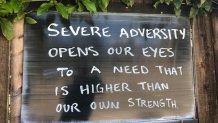 SEVERE ADVERSITY
OPENS OUR EYES
TO A NEED THAT
IS HIGHER THAN
OUR OWN STRENGTH